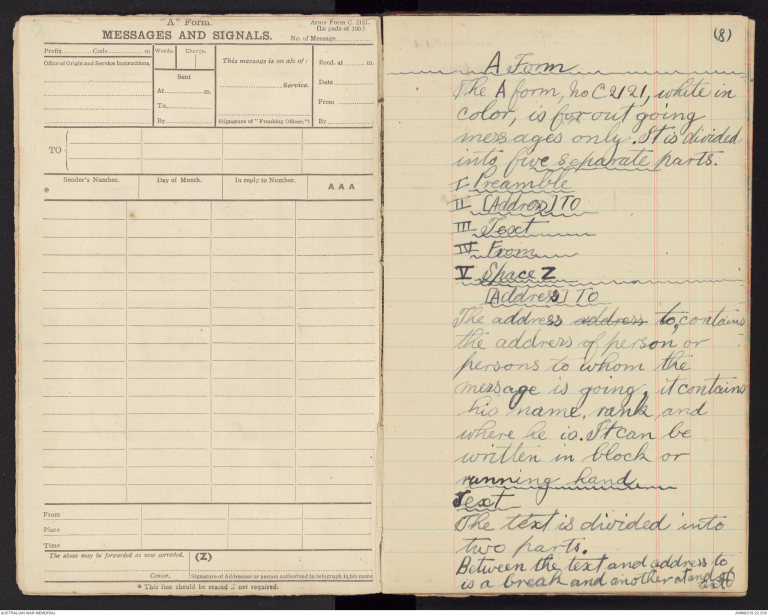 "A" Form.
Army Form C. 2121.
(In pads of 100.)
MESSAGES AND SIGNALS.
No. of Message
Prefix Code m
Words. Charge.
Office of Origin and Service Instructions.
Sent
At m.
To
By
This message is on a/c of :
Service.
(Signature of "Franking Officer.")
Recd. at m.
Date
From
By
TO
Sender's Number. Day of Month. In reply to Number. A A A
*
From
Place
Time
The above may be forwarded as now corrected. (Z)
Censor. Signature of Addressor or person authorised to telegraph in his name
* This line should be erased if not required.
(8)
A Form
The A form, No C 2121, white in
color, is for out going
messages only. It is divided
into five separate parts.
I Preamble
II [Address] TO
III Text
IV From
V Space Z
[Address] TO
The address address to, contains
the address of person or
persons to whom the
message is going, it contains
his name, rank and
where he is. It can be
written in block or
running hand.
Text
The text is divided into
two parts.
Between the text and address to
is a break and another at end of
text
AUSTRALIAN WAR MEMORIAL